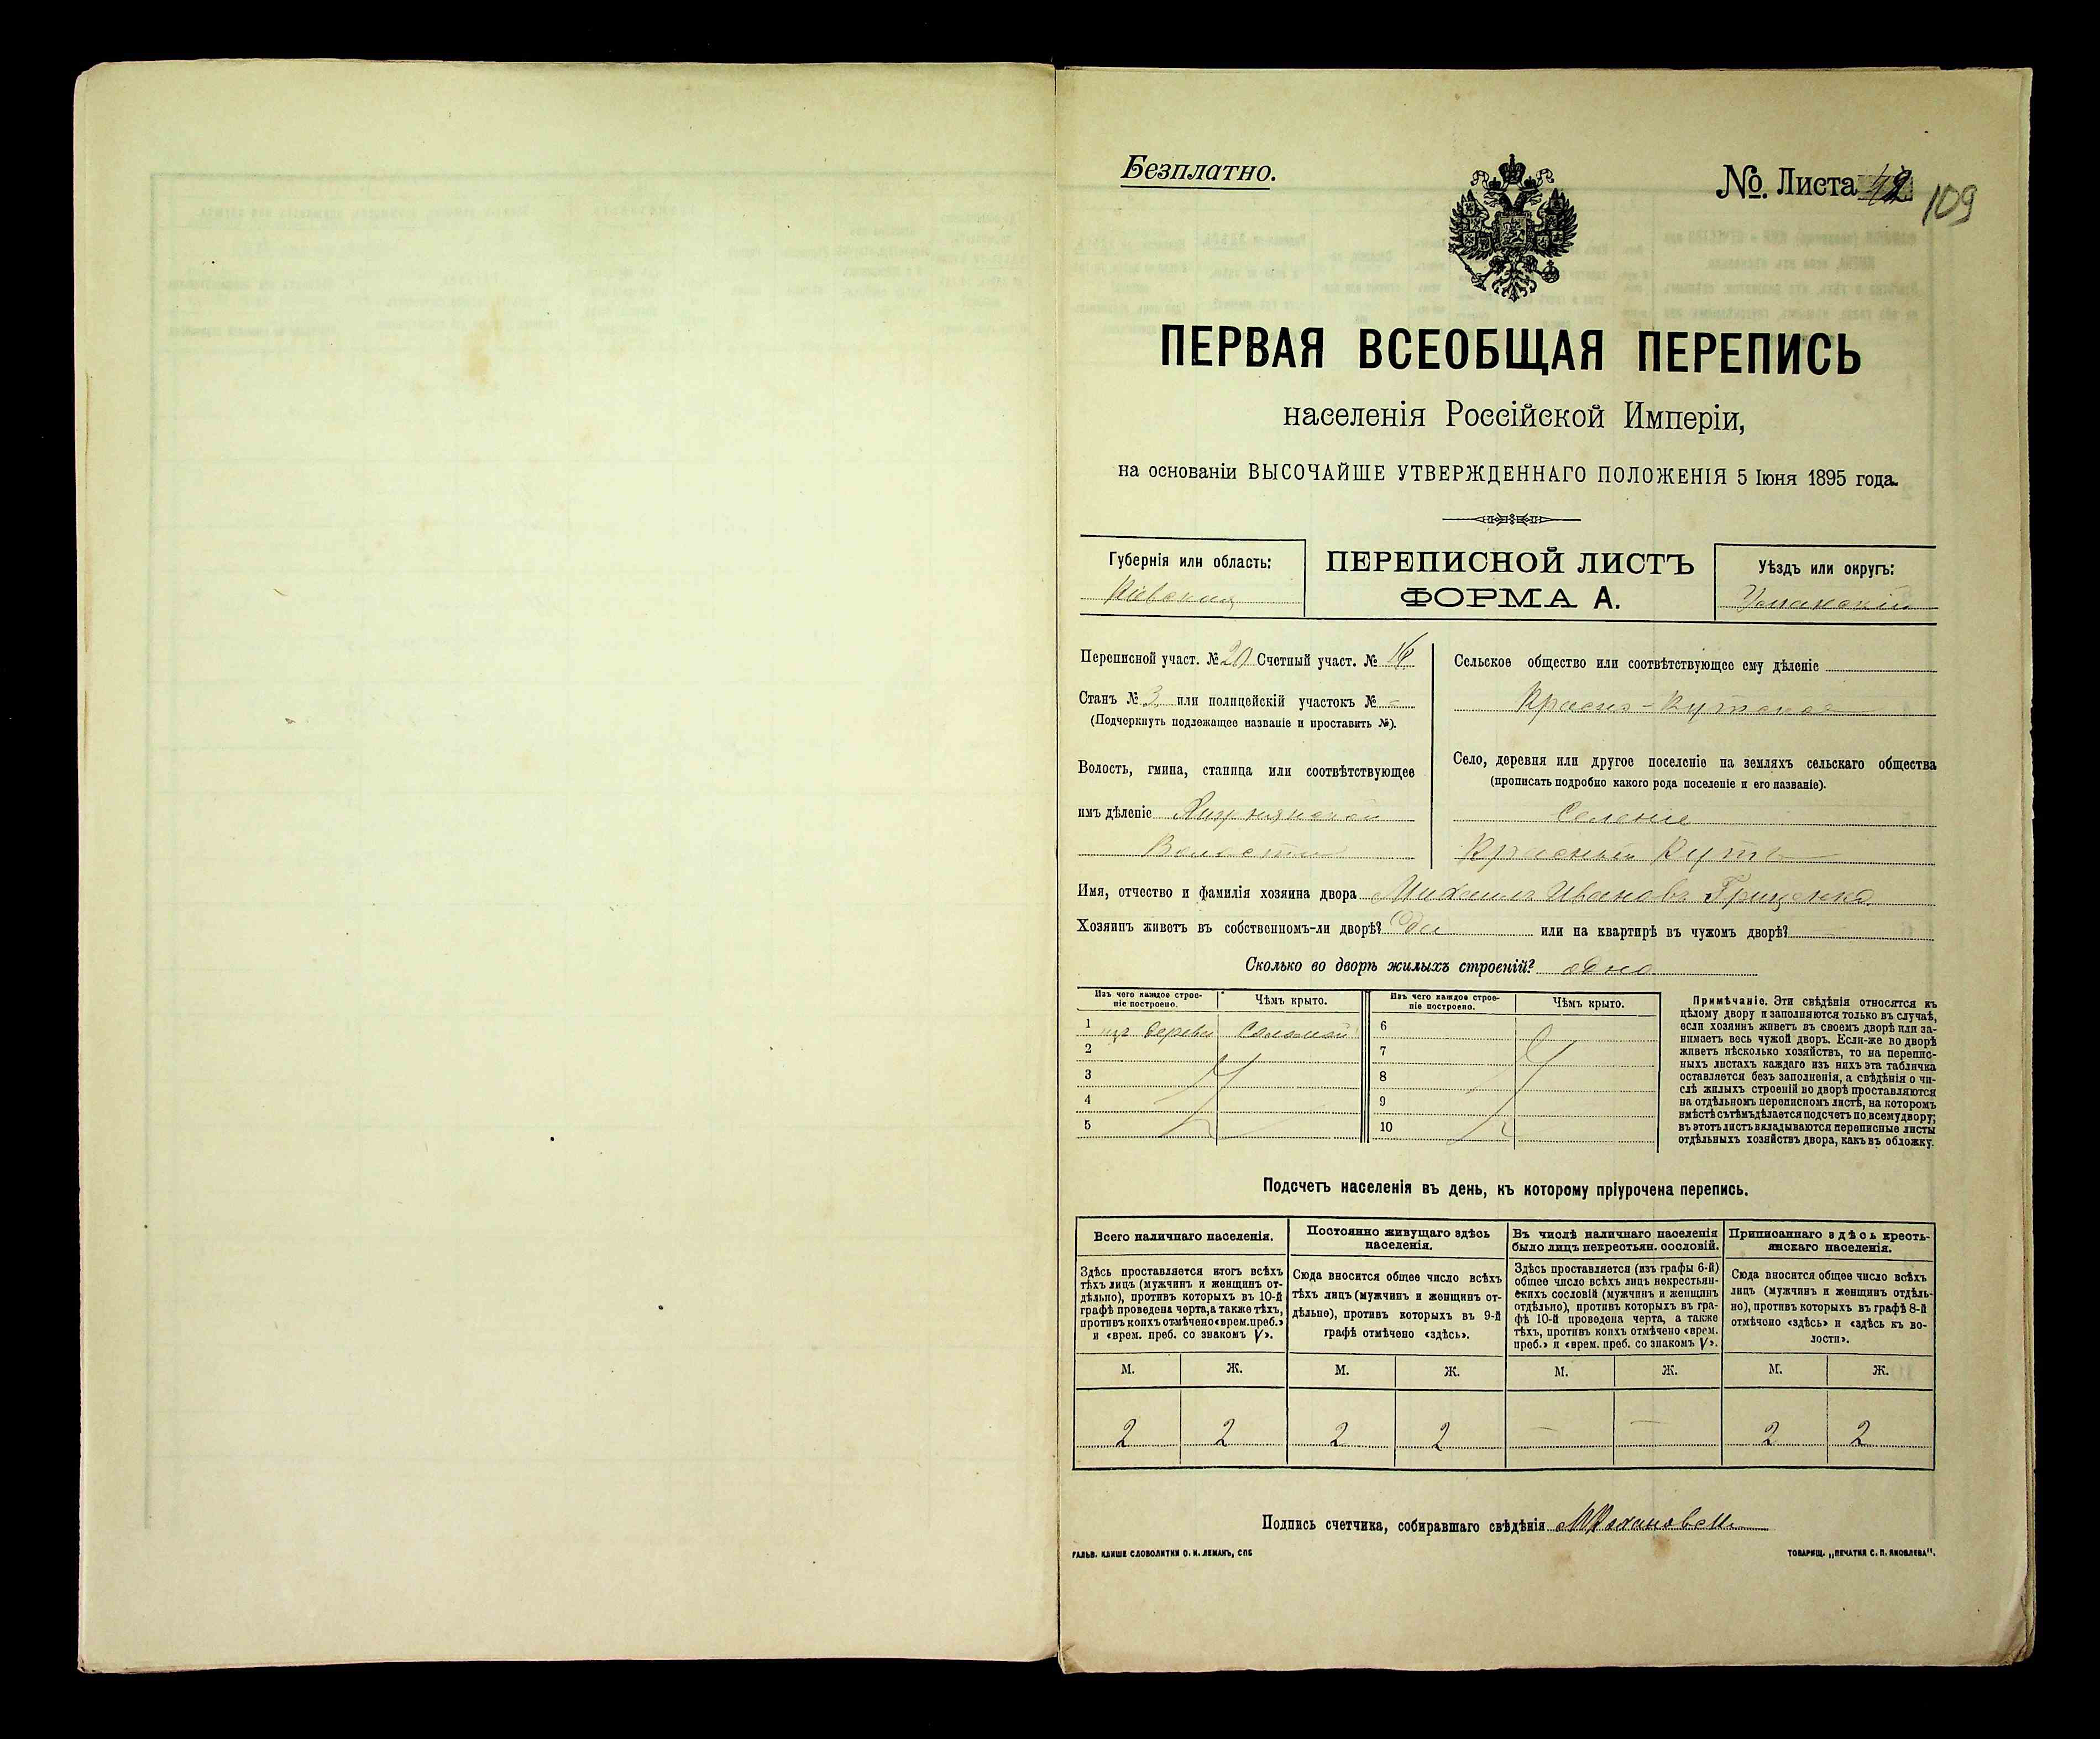 Безплатно.
№. Листа 42
109
ПЕРВАЯ ВСЕОБЩАЯ ПЕРЕПИСЬ
населенія Россійской Имперіи,
на основаніи ВЫСОЧАЙШЕ УТВЕРЖДЕННАГО ПОЛОЖЕНІЯ 5 Іюня 1895 года.
Губернія или область:
Кіевская
ПЕРЕПИСНОЙ ЛИСТЪ
ФОРМА А.
Уѣздъ или округъ:
Уманскій
Переписной участ. № 20 Счетный участ. №
Станъ № 3 или полицейскій участокъ № -
(Подчеркнуть подлежащее названіе и проставить №).
Волость, гмина, станица или соотвѣтствующее
имъ дѣленіе
Волости
Сельское общество или соотвѣтствующее ему дѣленіе
Красно-Кутское
Село, деревня или другое поселеніе на земляхъ сельскаго общества
(прописать подробно какого рода поселеніе и его названіе).
Селеніе
Красный Кутъ
Имя, отчество и фамилія хозяина двора Михаилъ Ивановъ Грищенко
Хозяинъ живетъ въ собственномъ-ли дворѣ? да или на квартирѣ въ чужомъ дворѣ?
Сколько во дворѣ жилыхъ строеній? одно
Изъ чего каждое строе-
ніе построено.
Чѣмъ крыто.
Изъ чего каждое строе-
ніе построено.
Чѣмъ крыто.
1 изъ дерева Соломой
2
3
4
5
6
7
8
9
10
Примѣчаніе. Эти свѣдѣнія относятся къ
цѣлому двору и заполняются только въ случаѣ,
если хозяинъ живетъ въ своемъ дворѣ или за-
нимаетъ весь чужой дворъ. Если-же во дворѣ
живетъ нѣсколько хозяйствъ, то на перепис-
ныхъ листахъ каждаго изъ нихъ эта табличка
оставляется безъ заполненія, а свѣдѣнія о чи-
слѣ жилыхъ строеній во дворѣ проставляются
на отдѣльномъ переписномъ листѣ, на которомъ
вмѣстѣ съ тѣмъ дѣлается подсчетъ по всему двору;
въ этотъ листъ вкладываются переписные листы
отдѣльныхъ хозяйствъ двора, какъ въ обложку.
Подсчетъ населенія въ день, къ которому пріурочена перепись.
Всего наличнаго населенія.
Здѣсь проставляется итогъ всѣхъ
тѣхъ лицъ (мужчинъ и женщинъ от-
дѣльно), противъ которыхъ въ 10-й
графѣ проведена черта, а также тѣхъ,
противъ коихъ отмѣчено «врем. преб.»
и «врем. преб. со знакомъ V».
М. Ж.
2 2
Постоянно живущаго здѣсь
населенія.
Сюда вносится общее число всѣхъ
тѣхъ лицъ (мужчинъ и женщинъ от-
дѣльно), противъ которыхъ въ 9-й
графѣ отмѣчено «здѣсь».
М. Ж.
2 2
Въ числѣ наличнаго населенія
было лицъ некрестьян. сословій.
Здѣсь проставляется (изъ графы 6-й)
общее число всѣхъ лицъ некрестьян-
скихъ сословій (мужчинъ и женщинъ
отдѣльно), противъ которыхъ въ гра-
фѣ 10-й проведена черта, а также
тѣхъ, противъ коихъ отмѣчено «врем.
преб.» и «врем. преб. со знакомъ V».
М. Ж.
— —
Приписаннаго здѣсь кресть-
янскаго населенія.
Сюда вносится общее число всѣхъ
лицъ (мужчинъ и женщинъ отдѣль-
но), противъ которыхъ въ графѣ 8-й
отмѣчено «здѣсь» и «здѣсь къ во-
лости».
М. Ж.
2 2
Подпись счетчика, собиравшаго свѣдѣнія
ГАЛЬВ. КЛИШЕ СЛОВОЛИТНИ О. И. ЛЕМАНЪ, СПБ
ТОВАРИЩ. „ПЕЧАТНЯ С. П. ЯКОВЛЕВА".